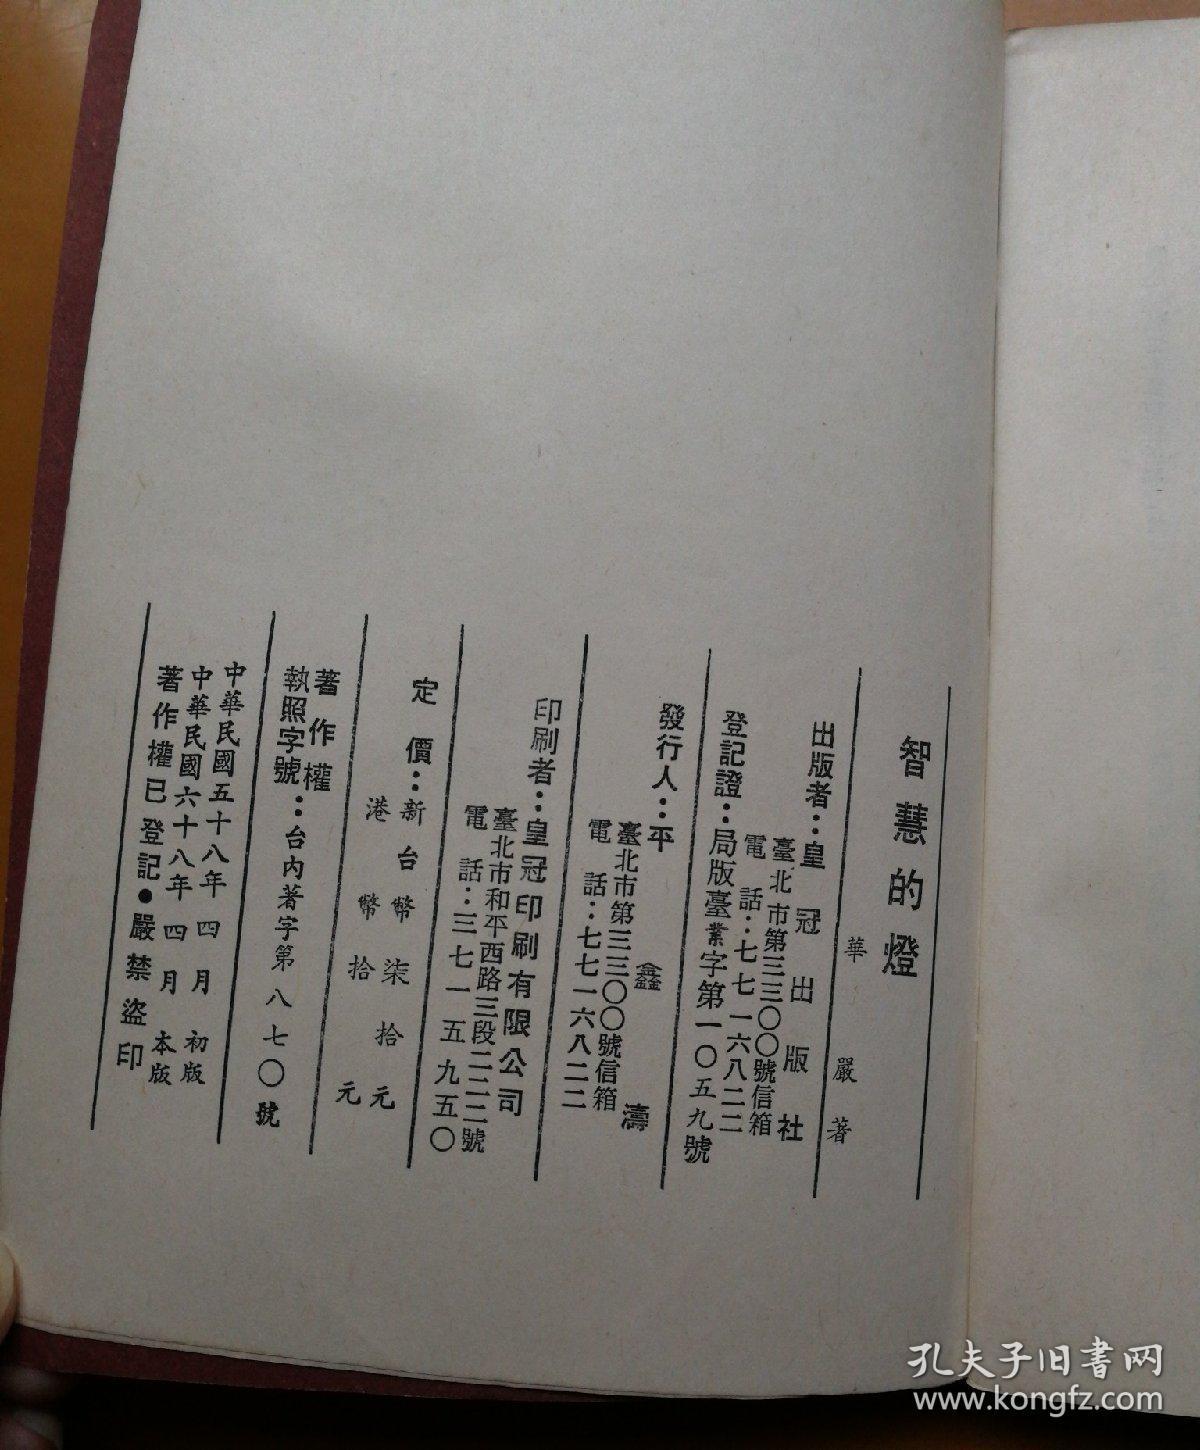 智慧的燈
華嚴著
出版者：皇冠出版社
臺北市第三三〇〇號信箱
電話：七七一六八二二
登記證：局版臺業字第一〇五九號
發行人：平鑫濤
臺北市第三三〇〇號信箱
電話：七七一六八二二
印刷者：皇冠印刷有限公司
臺北市和平西路三段二二二號
電話：三七一五九五〇
定價：新台幣柒拾元
港幣拾元
著作權
執照字號：台內著字第八七〇號
中華民國五十八年四月初版
中華民國六十八年四月本版
著作權已登記●嚴禁盜印
孔夫子旧書网
www.kongfz.com